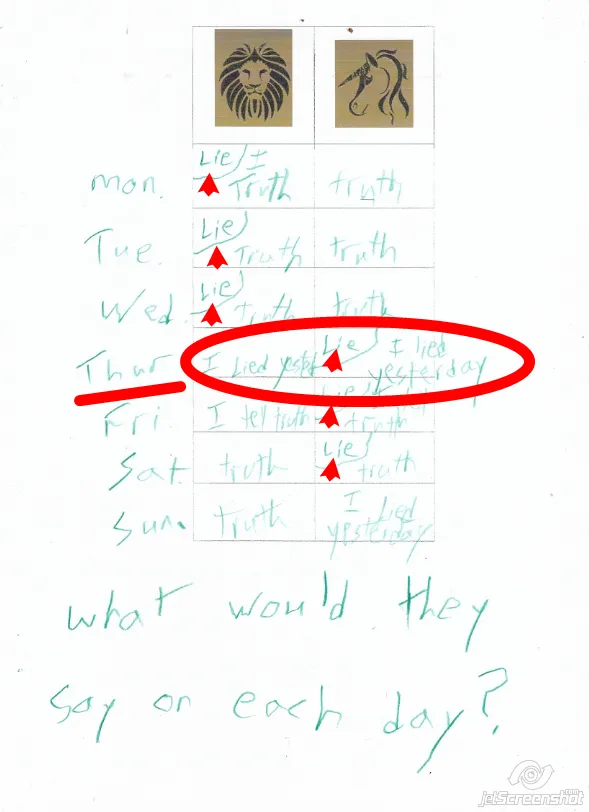 Lie) I
mon. Truth truth
Lie)
Tue. Truth truth
Lie)
Wed. truth truth
Lie) I lied
Thur I Lied yesterday
Lie)
Fri. I tell truth truth
Lie)
Sat. truth truth
I Lied
Sun. truth yesterday
what would they
say on each day?
jetScreenshot.com